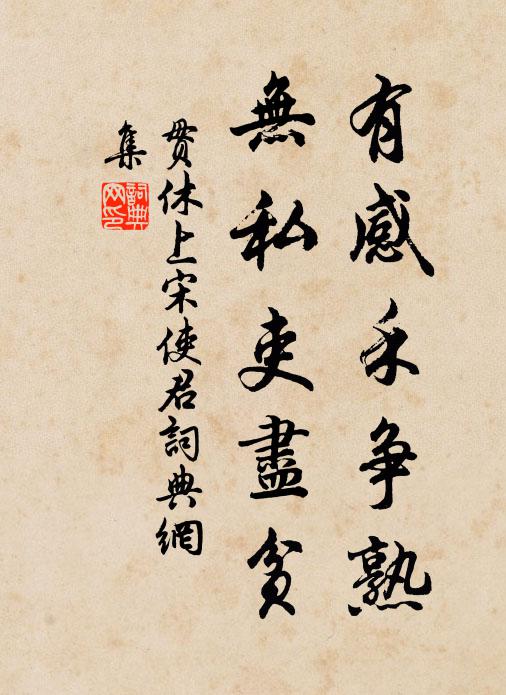 有感禾争熟
無私吏盡貧
貫休上宋使君詞典網
集
詞典網印